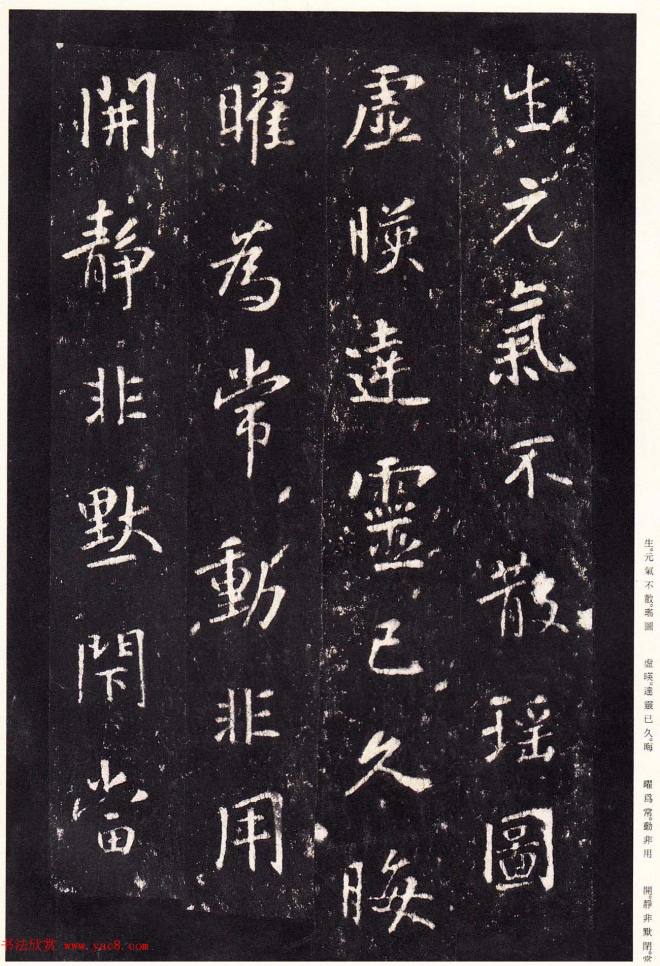 生元氣不散瑶圖
虛暎達靈已久晦
曜為常動非用
開靜非默閇當
生。元氣不散。瑤圖
虛暎。達靈已久。晦
曜爲常。動非用
開。靜非默閉。當
书法欣赏 www.yac8.com